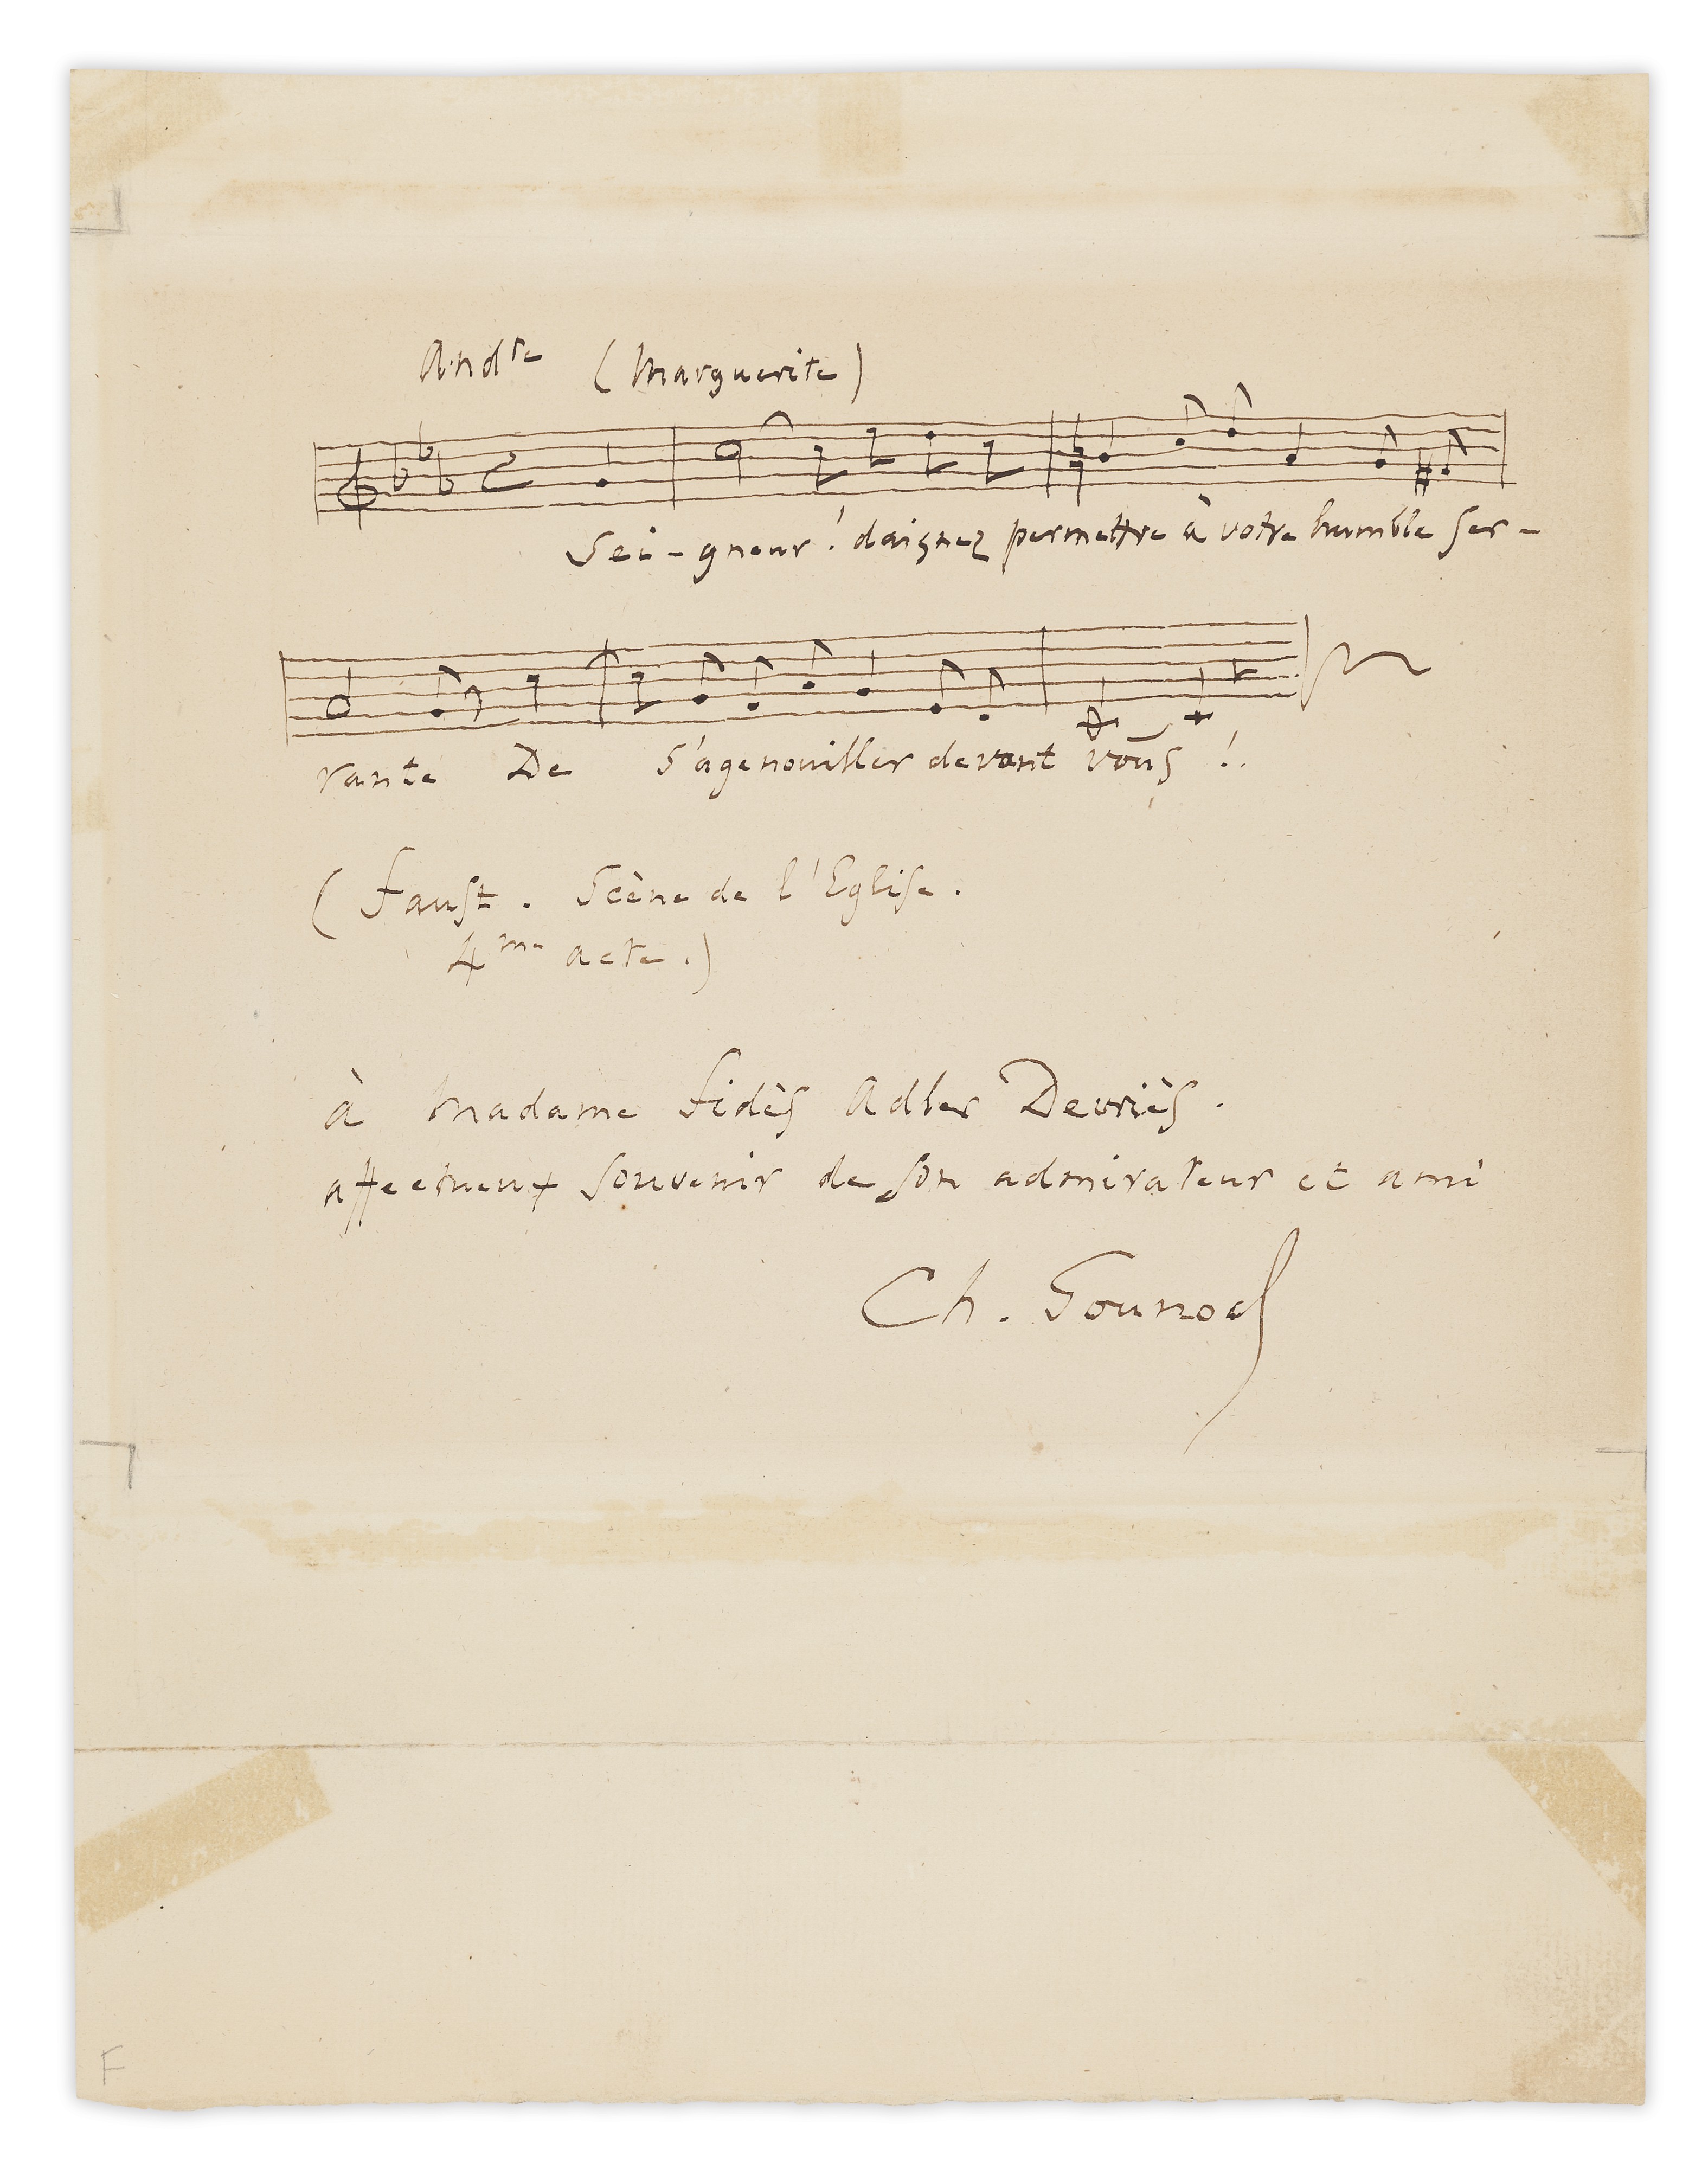 And.te (Marguerite)
Sei-gneur ! daignez permettre à votre humble ser-
vante De s'agenouiller devant vous !.
( Faust . Scène de l'Eglise .
4me acte .)
à Madame Fidès Adler Devriès .
affectueux souvenir de son admirateur et ami
Ch. Gounod
F